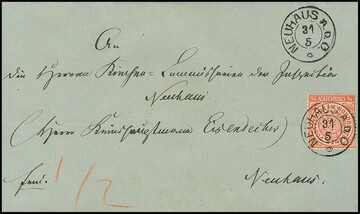 NEUHAUS A.D.O
31
5
An
die Herren Kirchen-Commissarien der Inspection
Neuhaus
(Herrn Amtshauptmann Eisendecher)
NEUHAUS A.D.O
31
5
1/2
Neuhaus.